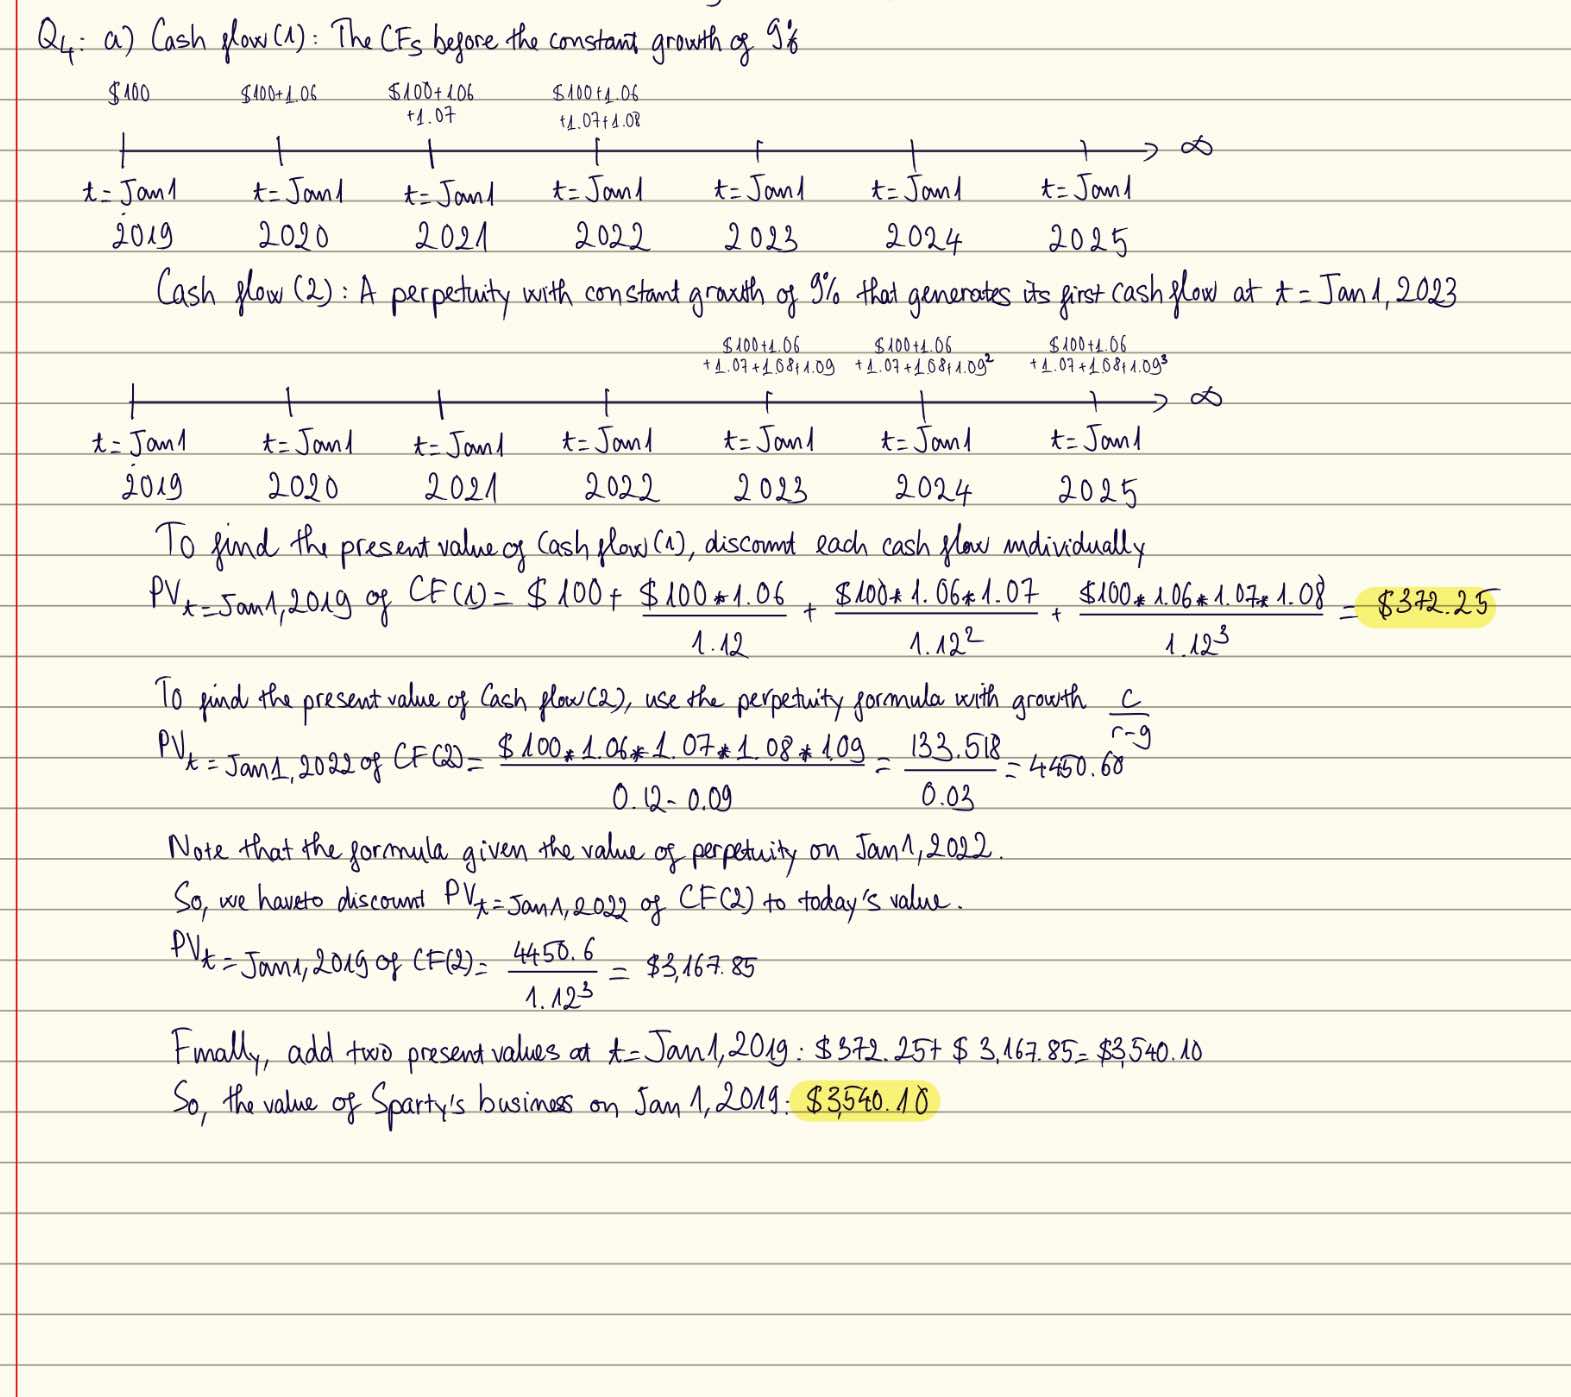 Q4: a) Cash flow (1): The CFs before the constant growth of 9%
$100 $100+1.06 $100+1.06 $100+1.06
+1.07 +1.07+1.08
∞
t=Jan1 t=Jan1 t=Jan1 t=Jan1 t=Jan1 t=Jan1 t=Jan1
2019 2020 2021 2022 2023 2024 2025
Cash flow (2): A perpetuity with constant growth of 9% that generates its first cash flow at t=Jan 1, 2023
$100+1.06 $100+1.06 $100+1.06
+1.07+1.08+1.09 +1.07+1.08+1.09² +1.07+1.08+1.09³
∞
t=Jan1 t=Jan1 t=Jan1 t=Jan1 t=Jan1 t=Jan1 t=Jan1
2019 2020 2021 2022 2023 2024 2025
To find the present value of Cash flow (1), discount each cash flow individually
PV t=Jan1,2019 of CF(1) = $100 + $100*1.06/1.12 + $100*1.06*1.07/1.12² + $100*1.06*1.07*1.08/1.12³ = $372.25
To find the present value of Cash flow (2), use the perpetuity formula with growth c/r-g
PV t=Jan1,2022 of CF(2) = $100*1.06*1.07*1.08*1.09/0.12-0.09 = 133.518/0.03 = 4450.60
Note that the formula given the value of perpetuity on Jan 1, 2022.
So, we have to discount PV t=Jan1,2022 of CF(2) to today's value.
PV t=Jan1,2019 of CF(2) = 4450.6/1.12³ = $3,167.85
Finally, add two present values at t=Jan 1, 2019: $372.25+ $3,167.85= $3,540.10
So, the value of Sparty's business on Jan 1, 2019: $3,540.10